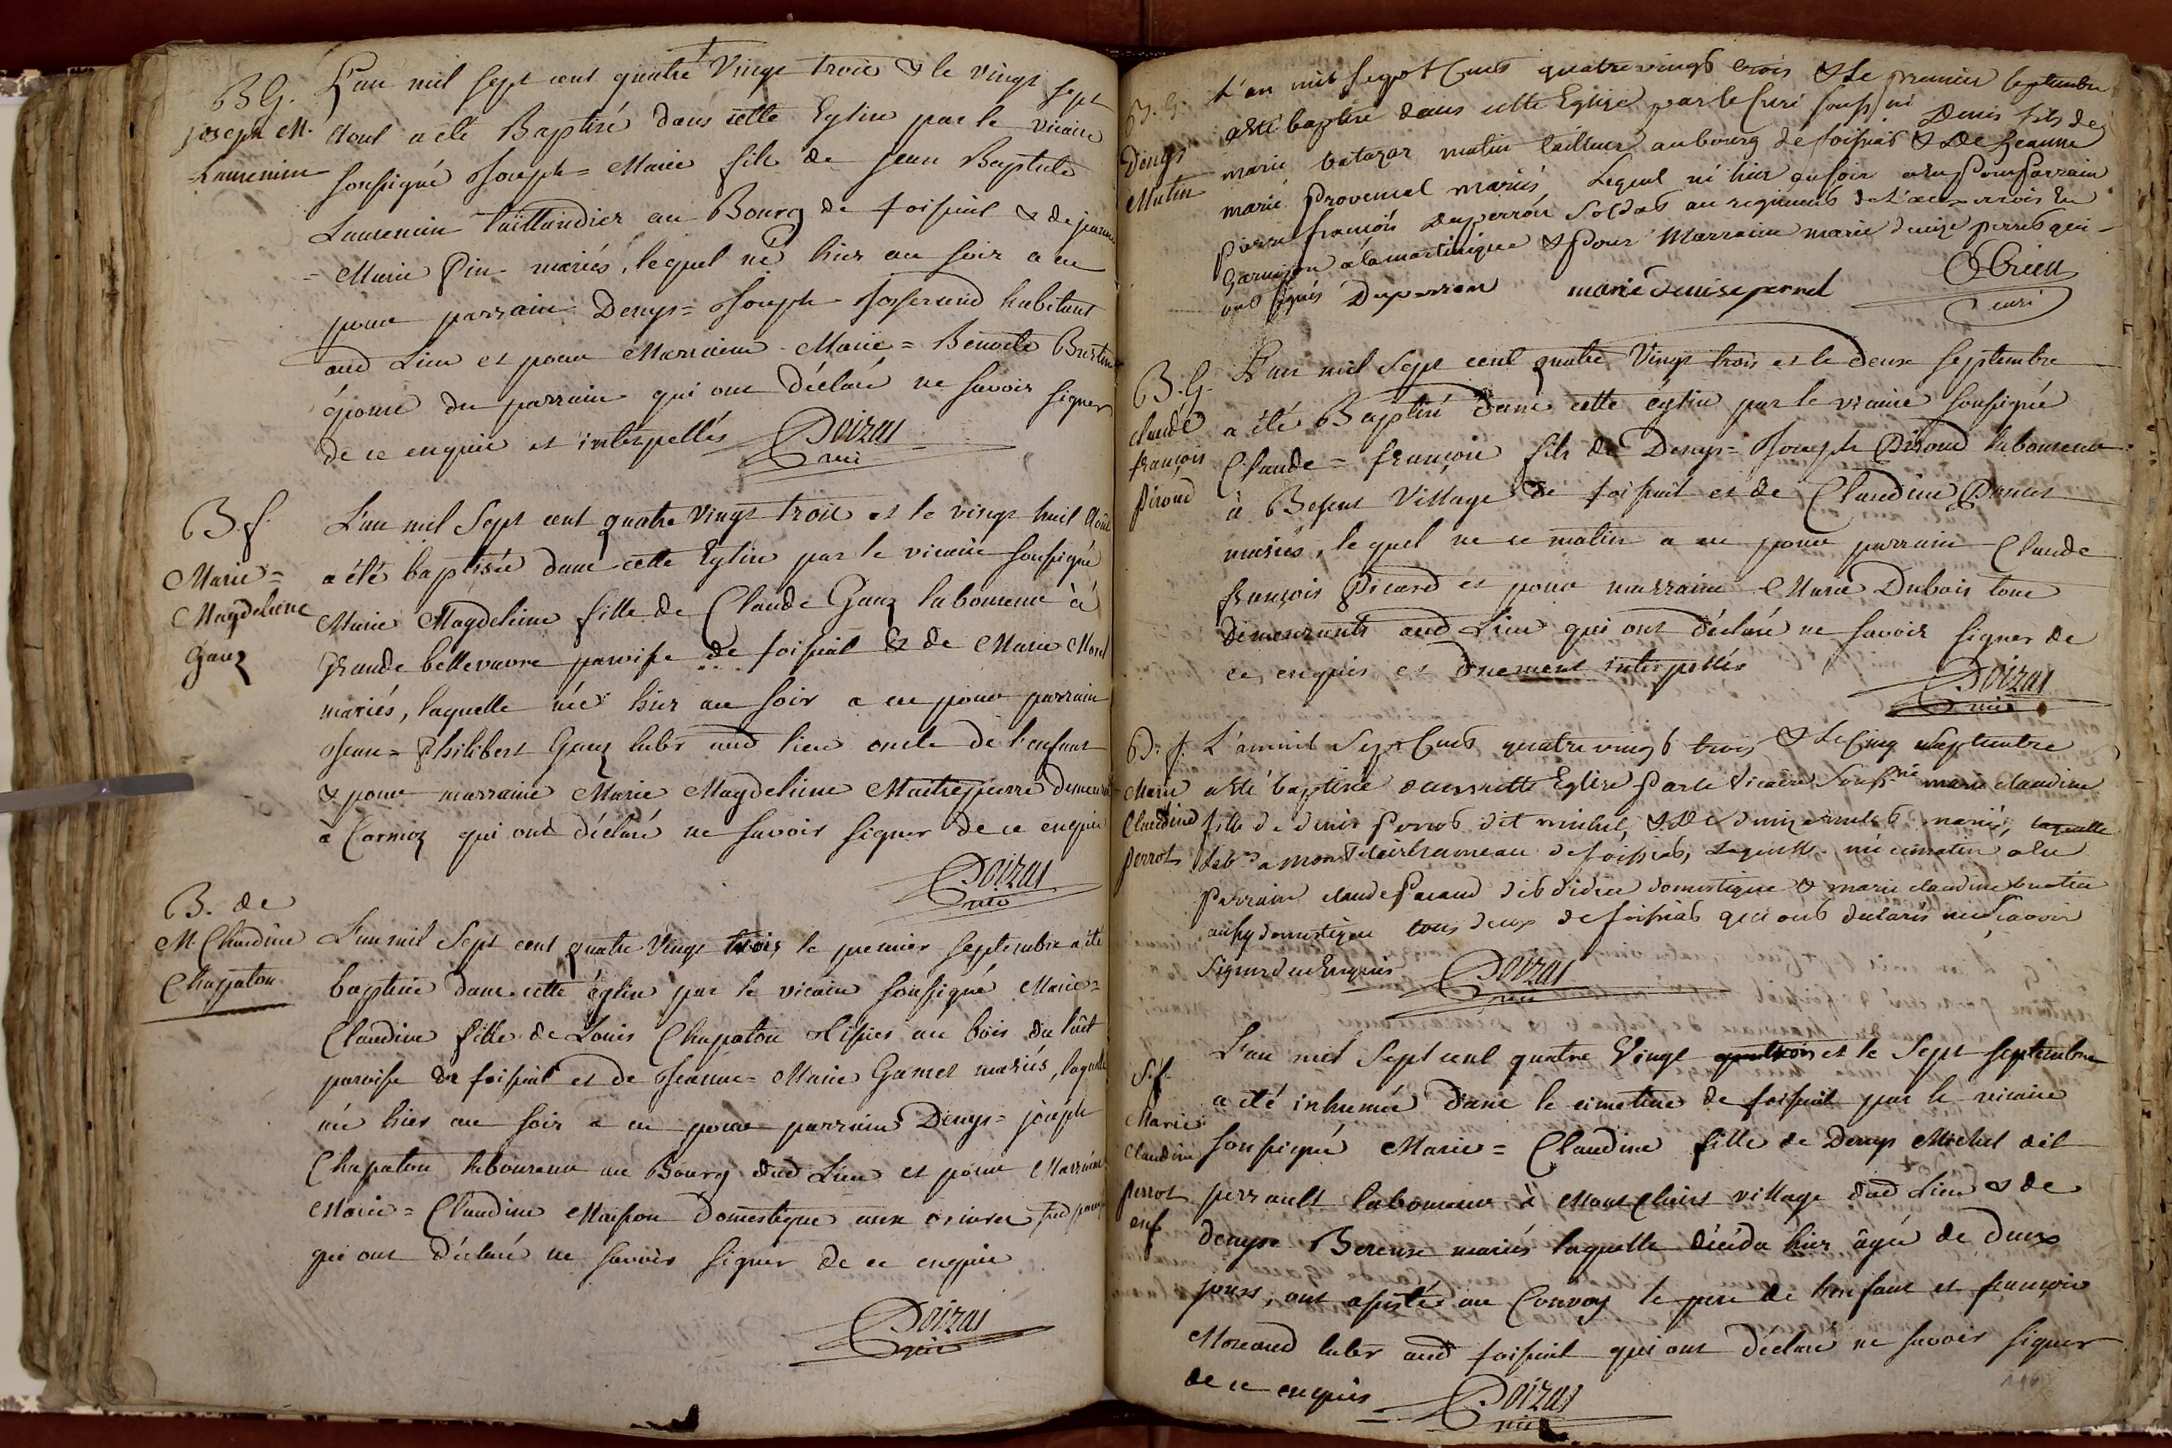 B G.
joseph M.
Laurencin
L'an mil sept cent quatre Vingt trois & le vingt sept
Aout a été Baptisé dans cette Eglise par le vicaire
soussigné Joseph = Marie fils de jean Baptiste
Laurencin taillandier au Bourg de foissiat & de jeanne
= Marie Pin mariés, lequel né hier au soir a eu
pour parrain Denys = Joseph Josserand habitant
aud Lieu et pour Marraine Marie = Benoite
épouse du parrain qui ont déclaré ne savoir signer
de ce enquis et interpellés Doizas
vic
B. f.
Marie =
Magdeleine
Gauz
L'an mil Sept cent quatre vingt trois et le vingt huit Août
a été baptisée dans cette Eglise par le vicaire soussigné
Marie Magdeleine fille de Claude Gauz laboureur à
grande bellevavre paroisse de foissiat & de Marie Morel
mariés, laquelle née hier au soir a eu pour parrain
Jean = Philibert Gauz labr aud lieu oncle de l'enfant
& pour marraine Marie Magdeleine Maitrepierre demeurant
à Cormoz qui ont déclaré ne savoir signer de ce enquis
Doizas
vic
B. de
M. Claudine
Chapaton
L'an mil Sept cent quatre Vingt trois le premier septembre a été
baptisée dans cette église par le vicaire soussigné Marie =
Claudine fille de Louis Chapaton tissier au bois du
paroisse de foissiat et de Jeanne = Marie Gamet mariés, laquelle
née hier au soir a eu pour parrain Denys = joseph
Chapaton laboureur au Bourg dud Lieu et pour Marraine
Marie = Claudine Maison domestique aux
qui ont déclaré ne savoir signer de ce enquis
Doizas
vic
B. G.
Denys
Mutin
L'an mil sept Cents quatre vingts trois & Le premier septembre
a été baptisé dans cette Eglise par le Curé soussigné Denis fils de
marie batazar mutin tailleur au bourg de foissiat & De jeanne
marie Provencal mariés, Lequel né hier au soir a eu pour parrain
pierre francois duperron Soldat au regiment de en
Garnison a la martinique & pour Marraine marie denise perret qui
ont signés Duperron marie denise pernet
Curé
B. G.
claude
françois
piroud
L'an mil Sept cent quatre Vingt trois et le deux septembre
a été Baptisé dans cette église par le vicaire soussigné
Claude = françois fils de Denys = Joseph Piroud laboureur
à Besent Village de foissiat et de Claudine
mariés, lequel né ce matin a eu pour parrain Claude
françois Picard et pour marraine Marie Dubois tous
demeurants aud Lieu qui ont déclaré ne savoir signer de
ce enquis et duement interpellés
Doizas
vic
B. f.
Marie
Claudine
perrot
L'an mil Sept Cents quatre vingt trois & Le Cinq Septembre
a été baptisée dans cette Eglise Par le Vicaire Soussné marie claudine
fille de denis perrot dit michel, & De denize mariés, laquelle
labr a mont clair hameau de foissiat, Laquelle née ce matin a eu
Parrain claude domestique & marie claudine
aussy domestique tous deux de foissiat qui ont declarés ne Scavoir
Signer de ce Enquis Doizas
vic
S. f.
Marie
Claudine
perrot
enf
L'an mil Sept cent quatre Vingt trois et le Sept septembre
a été inhumée dans le cimetiere de foissiat par le vicaire
soussigné Marie = Claudine fille de Denys Michel dit
perrault laboureur à Mont Clair village dud Lieu & de
denyse mariés laquelle décéda hier âgée de deux
jours, ont assisté au Convoy le pere de l'enfant et françois
Moreaud labr aud foissiat qui ont déclaré ne savoir signer
de ce enquis Doizas
vic